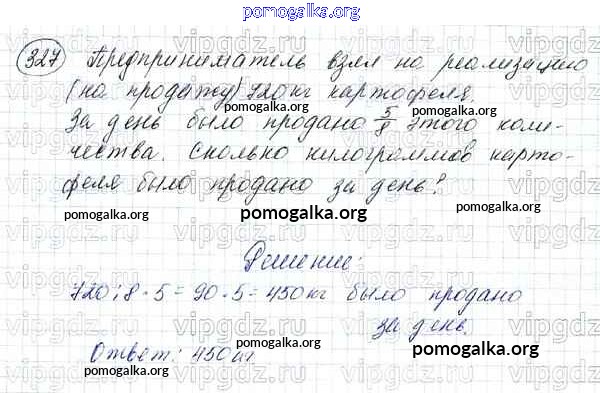 pomogalka.org
327 Предприниматель взял на реализацию
(на продажу) 720 кг картофеля.
За день было продано 5/8 этого коли-
чества. Сколько килограммов карто-
феля было продано за день?
pomogalka.org
pomogalka.org
pomogalka.org
Решение:
720 : 8 · 5 = 90 · 5 = 450 кг было продано
pomogalka.org
pomogalka.org
за день.
Ответ: 450 кг
pomogalka.org
pomogalka.org
pomogalka.org